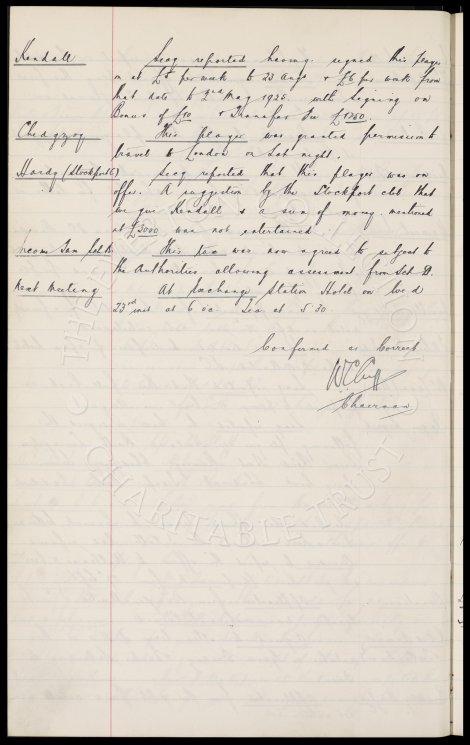 Kendall Secy reported having signed this player
on at £5 per week to 23 Aug & £6 per week from
that date to 2nd May 1925 with signing on
Bonus of £10 & Transfer fee £1250.
Chedgzoy This player was granted permission to
travel to London on Sat night.
Hardy (Stockport C) Secy reported that this player was on
offer. A suggestion by the Stockport club that
we give Kendall & a sum of money mentioned
at £3000 was not entertained.
Income Tax This tax was now agreed to subject to
the Authorities allowing assessment from Sch D.
Next Meeting At Exchange Station Hotel on Wed
23rd inst at 6 oc. Tea at 5.30
Confirmed as Correct
W C Cuff
Chairman
CHARITABLE TRUST